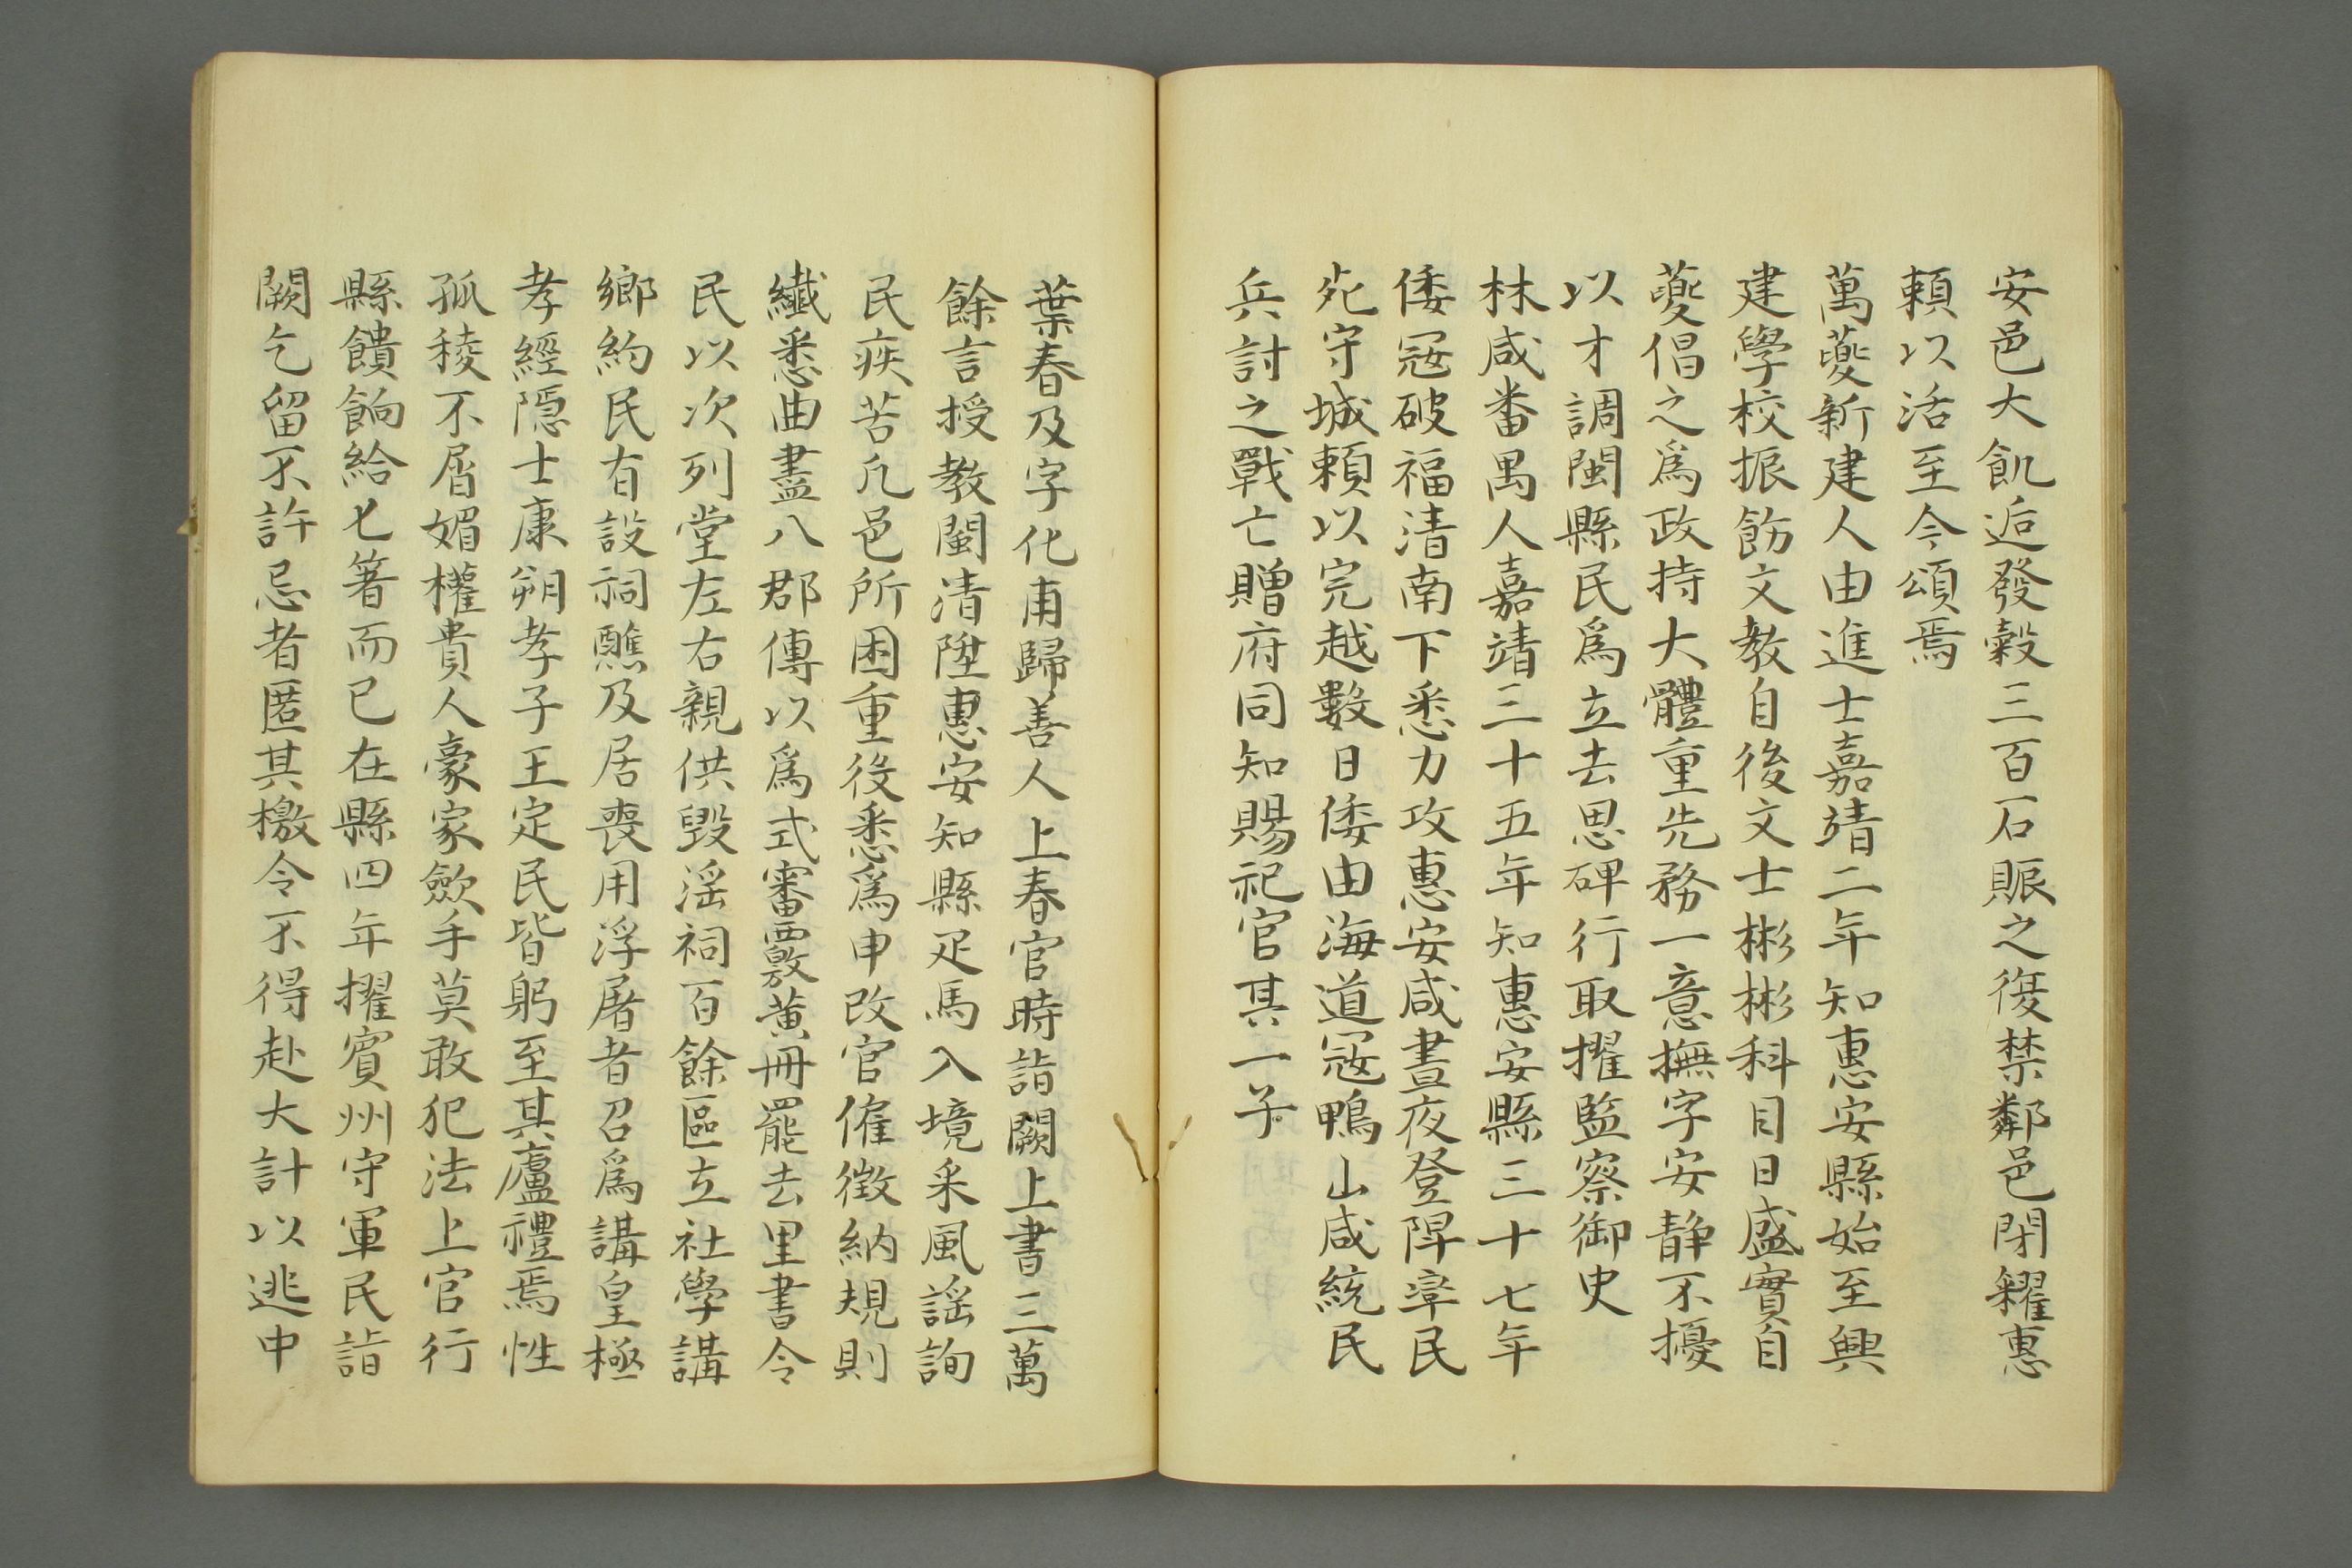 安邑大飢逅發穀三百石賑之復禁鄰邑閉糴惠
頼以活至今頌焉
萬夔新建人由進士嘉靖二年知惠安縣始至興
建學校振飭文教自後文士彬彬科目日盛實自
夔倡之爲政持大體重先務一意撫字安静不擾
以才調閩縣民爲立去思碑行取擢監察御史
林咸番禺人嘉靖三十五年知惠安縣三十七年
倭冦破福清南下悉力攻惠安咸晝夜登陴率民
死守城頼以完越數日倭由海道冦鴨山咸統民
兵討之戰亡贈府同知賜祀官其一子
葉春及字化甫歸善人上春官時詣闕上書三萬
餘言授教閩清陞惠安知縣疋馬入境采風謡詢
民疾苦凡邑所困重役悉爲申改官催徴納規則
纖悉曲盡八郡傳以爲式審覈黄冊罷去里書令
民以次列堂左右親供毁滛祠百餘區立社學講
鄉約民有設祠醮及居喪用浮屠者召爲講皇極
孝經隠士康朔孝子王定民皆躬至其廬禮焉性
孤稜不屑媚權貴人豪家歛手莫敢犯法上官行
縣饋餉給匕箸而已在縣四年擢賓州守軍民詣
闕乞留不許忌者匿其檄令不得赴大計以逃中